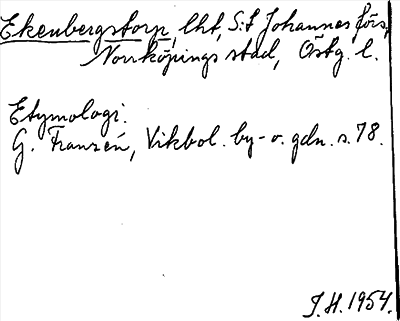 Ekenbergstorp, lht, S:t Johannes förs,
Norrköpings stad, Östg. l.
Etymologi.
G. Franzén, Vikbol. by- o. gdn. s. 78.
J.H. 1954.